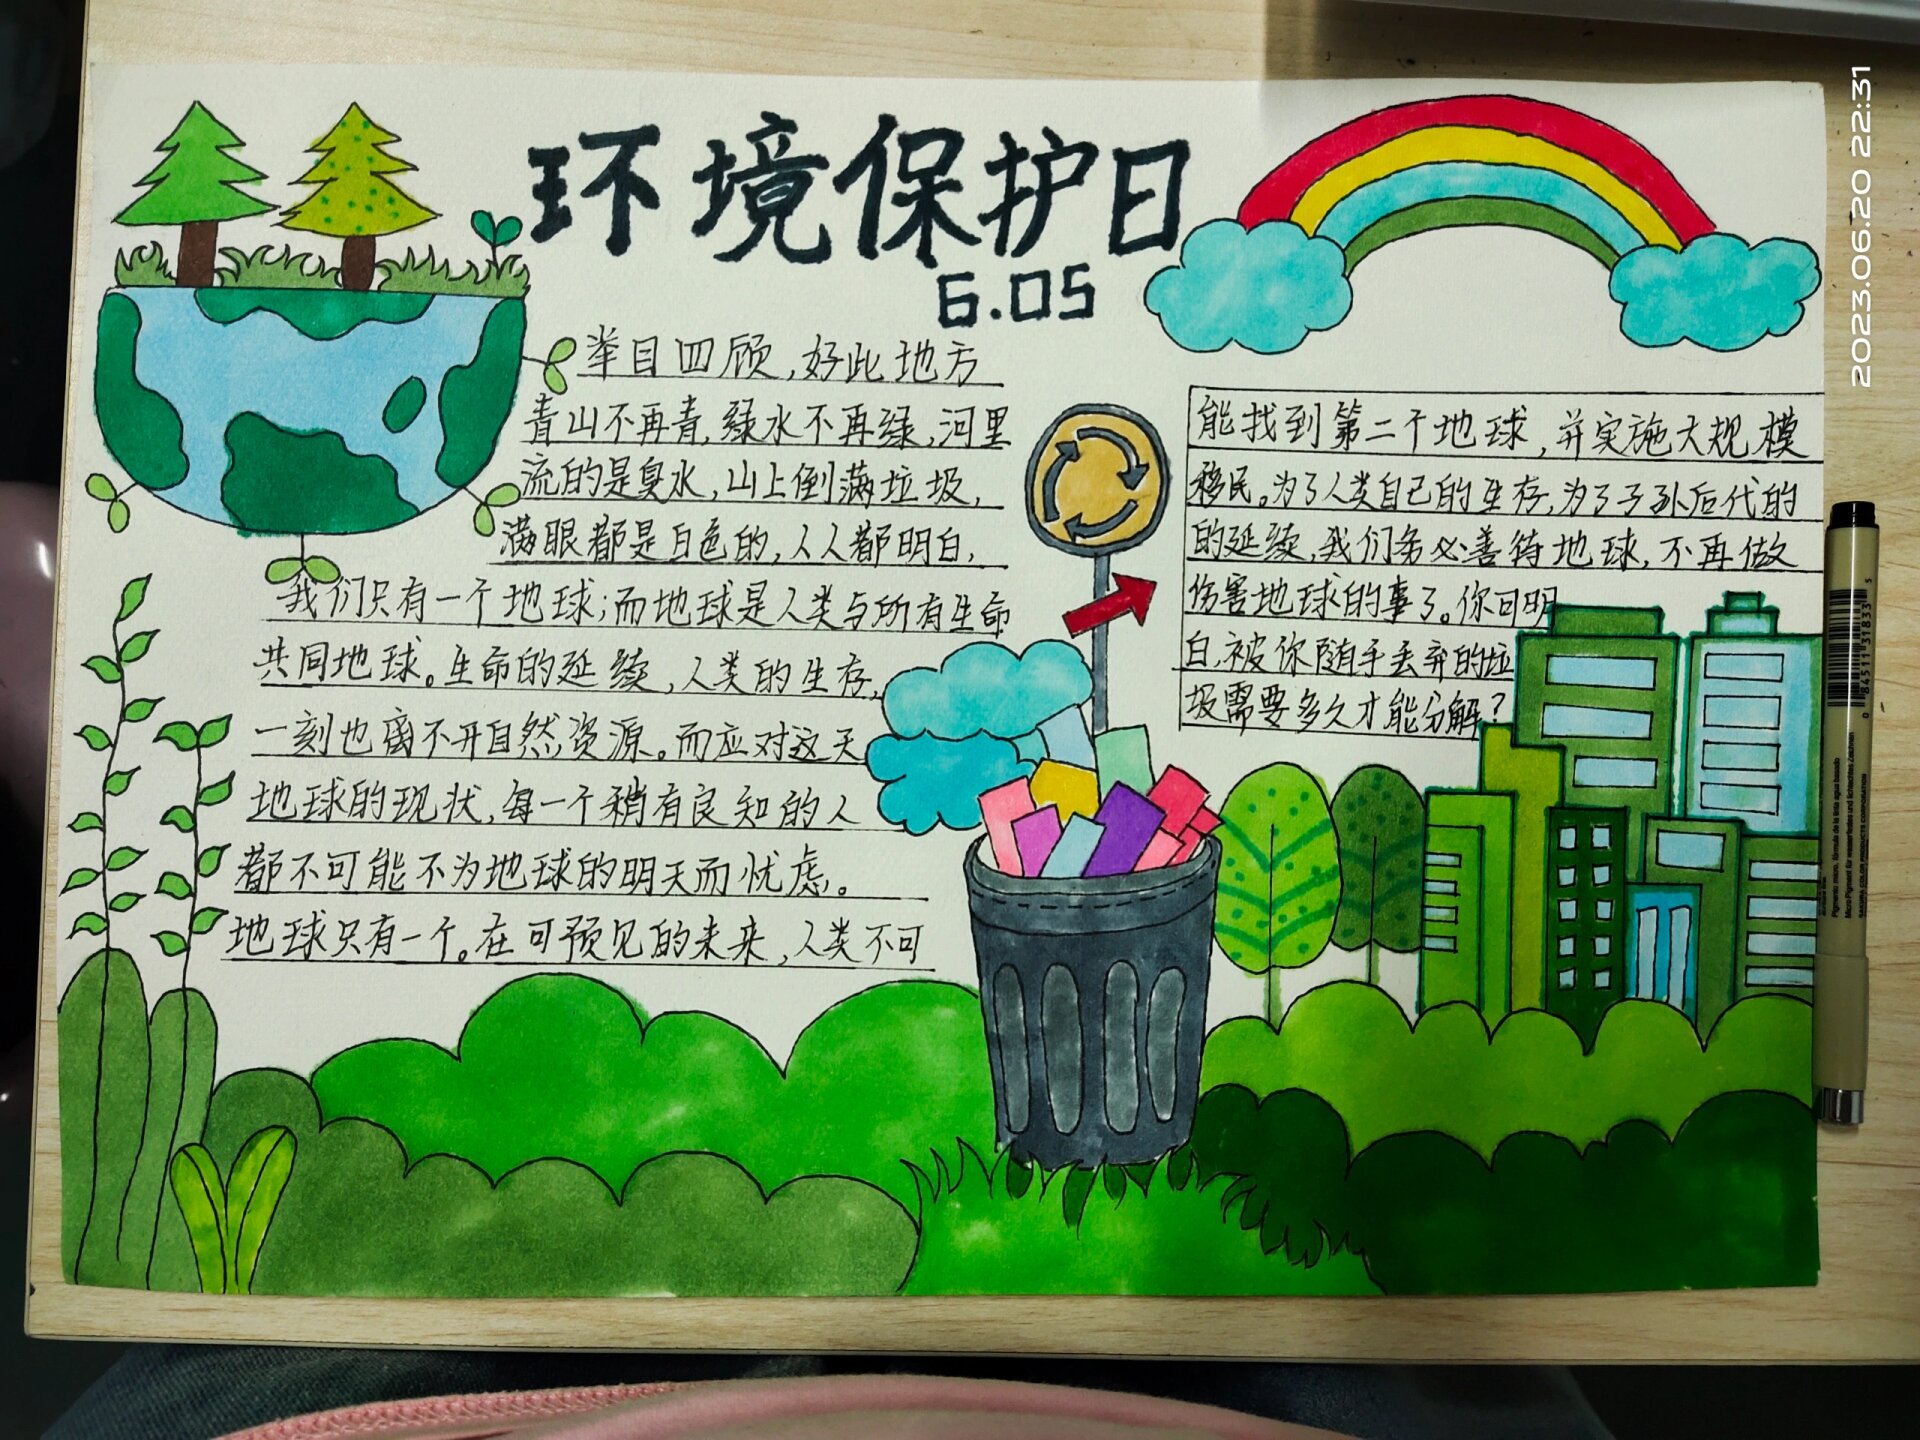 环境保护日
6.05
举目四顾,好此地方
青山不再青,绿水不再绿,河里
流的是臭水,山上倒满垃圾,
满眼都是白色的,人人都明白,
我们只有一个地球;而地球是人类与所有生命
共同地球。生命的延续,人类的生存,
一刻也离不开自然资源。而应对这天
地球的现状,每一个稍有良知的人
都不可能不为地球的明天而忧虑。
地球只有一个。在可预见的未来,人类不可
能找到第二个地球,并实施大规模
移民。为了人类自己的生存,为了子孙后代的
的延续,我们务必善待地球,不再做
伤害地球的事了。你可明
白,被你随手丢弃的垃
圾需要多久才能分解?
2023.06.20 22:31
0 84511 31833 5